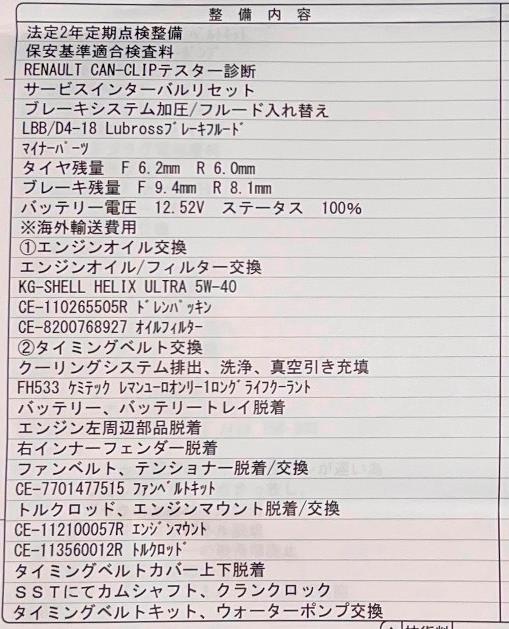 整備内容
法定2年定期点検整備
保安基準適合検査料
RENAULT CAN-CLIPテスター診断
サービスインターバルリセット
ブレーキシステム加圧/フルード入れ替え
LBB/D4-18 Lubrossﾌﾞﾚｰｷﾌﾙｰﾄﾞ
ﾏｲﾅｰﾊﾟｰﾂ
タイヤ残量 F 6.2mm R 6.0mm
ブレーキ残量 F 9.4mm R 8.1mm
バッテリー電圧 12.52V ステータス 100%
※海外輸送費用
①エンジンオイル交換
エンジンオイル/フィルター交換
KG-SHELL HELIX ULTRA 5W-40
CE-110265505R ﾄﾞﾚﾝﾊﾟｯｷﾝ
CE-8200768927 ｵｲﾙﾌｨﾙﾀｰ
②タイミングベルト交換
クーリングシステム排出、洗浄、真空引き充填
FH533 ｹﾐﾃｯｸ ﾚﾏﾝﾕｰﾛｵﾝﾘｰ1ﾛﾝｸﾞﾗｲﾌｸｰﾗﾝﾄ
バッテリー、バッテリートレイ脱着
エンジン左周辺部品脱着
右インナーフェンダー脱着
ファンベルト、テンショナー脱着/交換
CE-7701477515 ﾌｧﾝﾍﾞﾙﾄｷｯﾄ
トルクロッド、エンジンマウント脱着/交換
CE-112100057R ｴﾝｼﾞﾝﾏｳﾝﾄ
CE-113560012R ﾄﾙｸﾛｯﾄﾞ
タイミングベルトカバー上下脱着
ＳＳＴにてカムシャフト、クランクロック
タイミングベルトキット、ウォーターポンプ交換